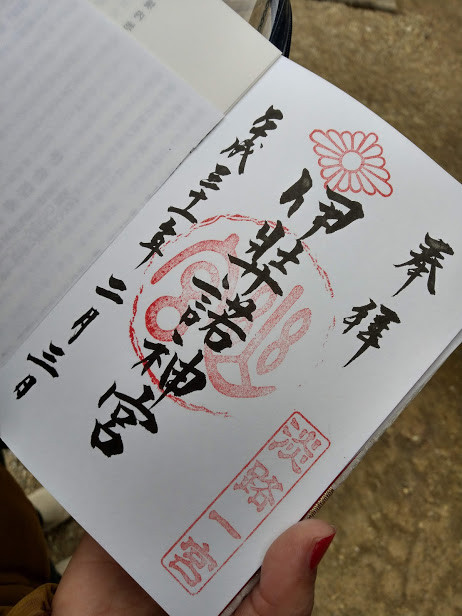 奉拝
伊弉諾神宮
平成三十一年二月三日
淡路一宮